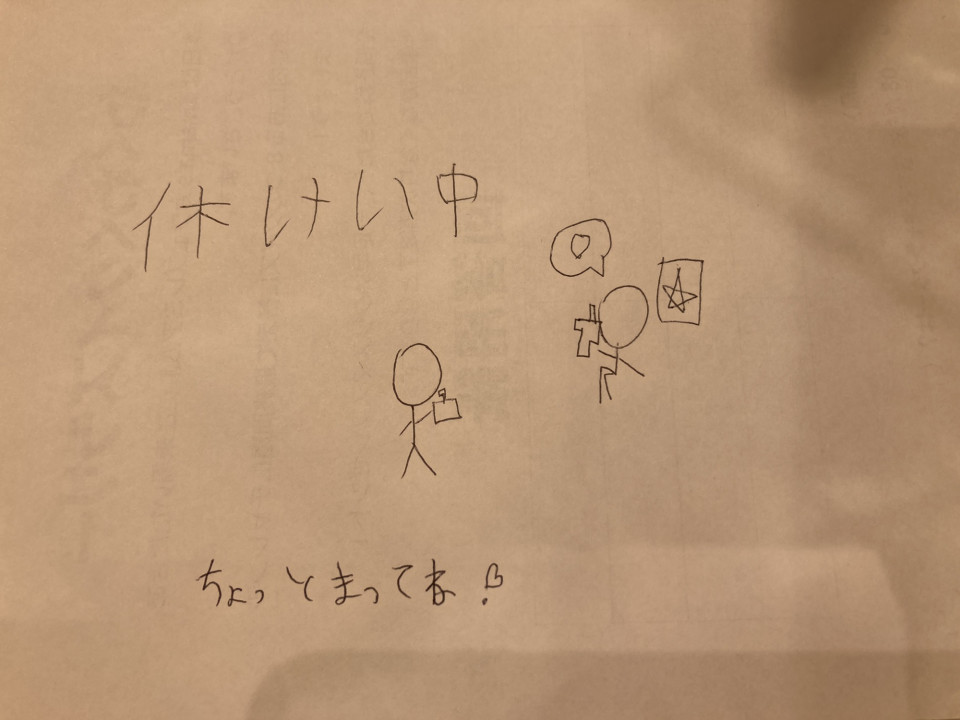 休けい中
ちょっとまってね!